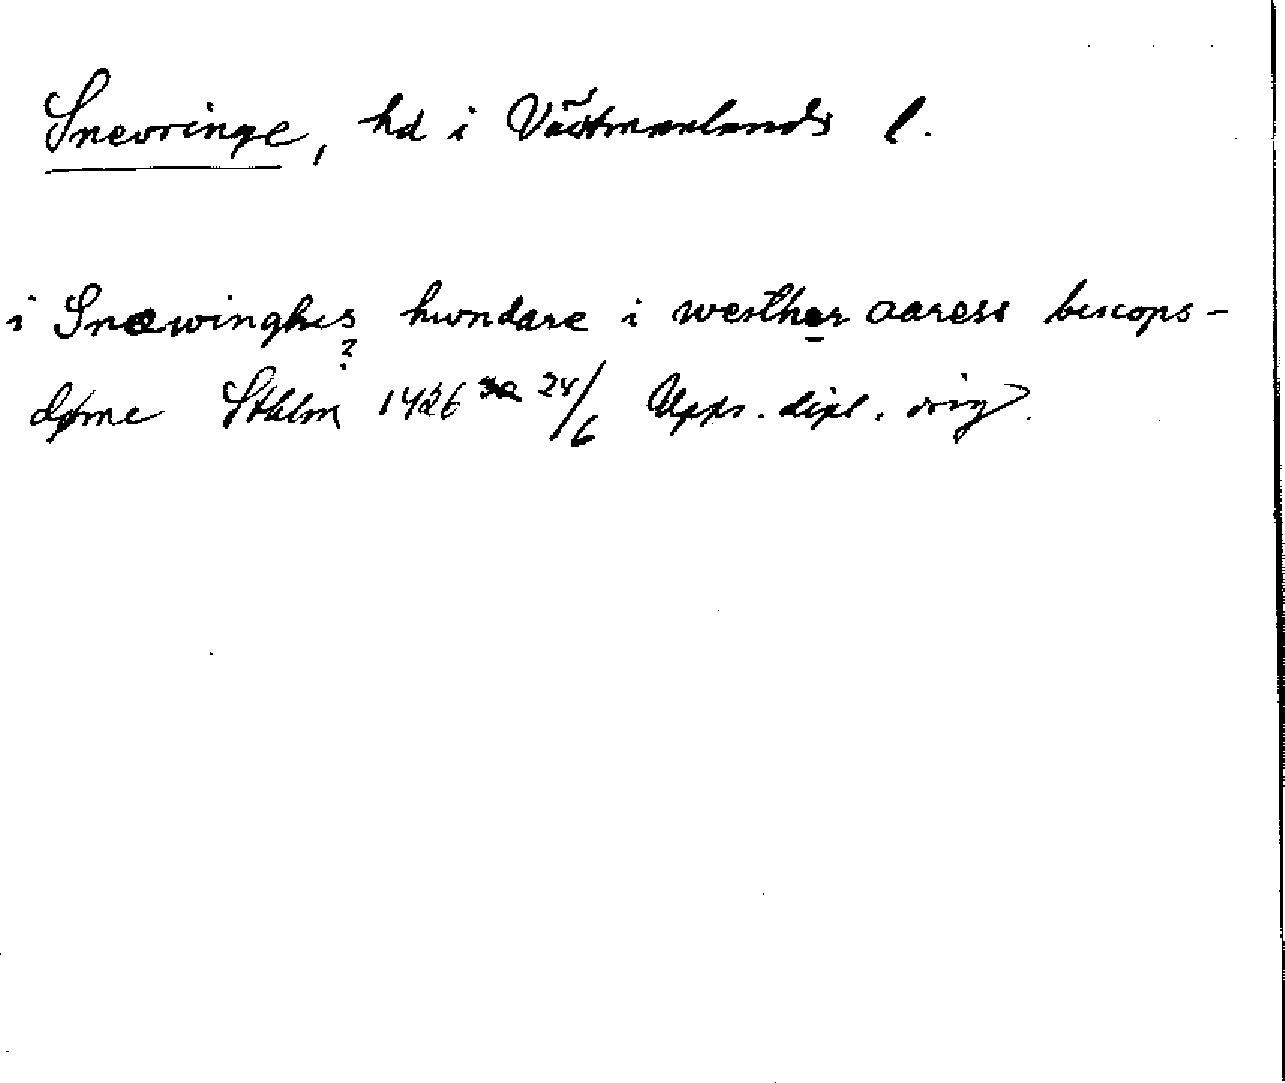 Snevringe, hd i Västmanlands l.
i Snæwinghes hundare i westher aaress biscops-
?
døme Sthlm 1426 24/6 Upps. dipl. orig.